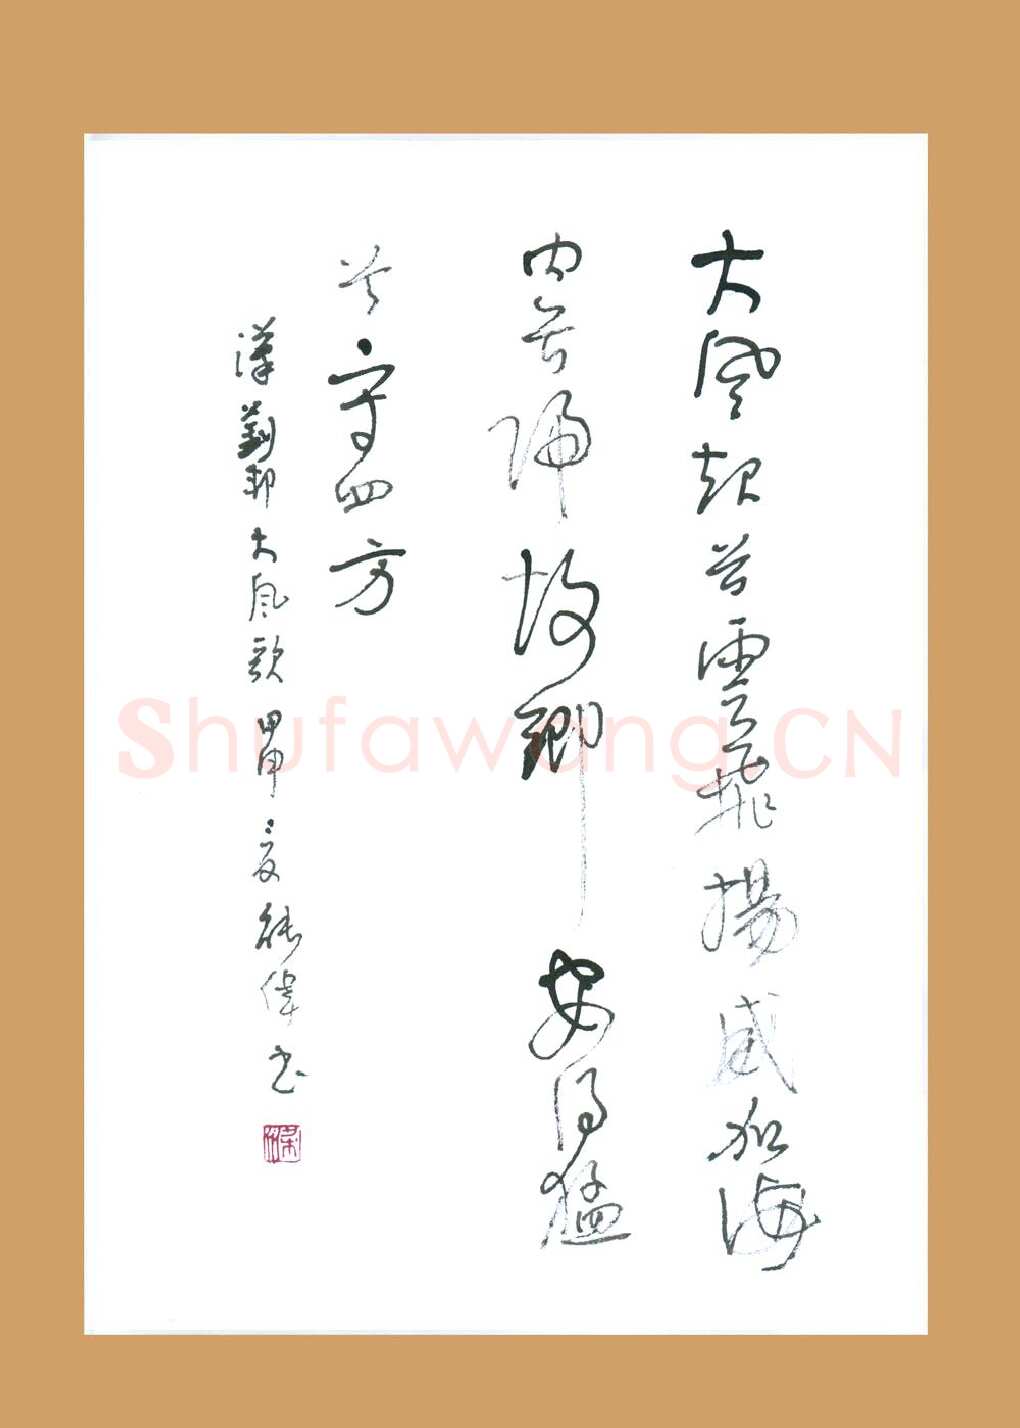 大风起兮雲飛揚威加海
内兮歸故鄉安得猛
兮守四方
漢劉邦大風歌甲申夏能偉书
ShufawangCN